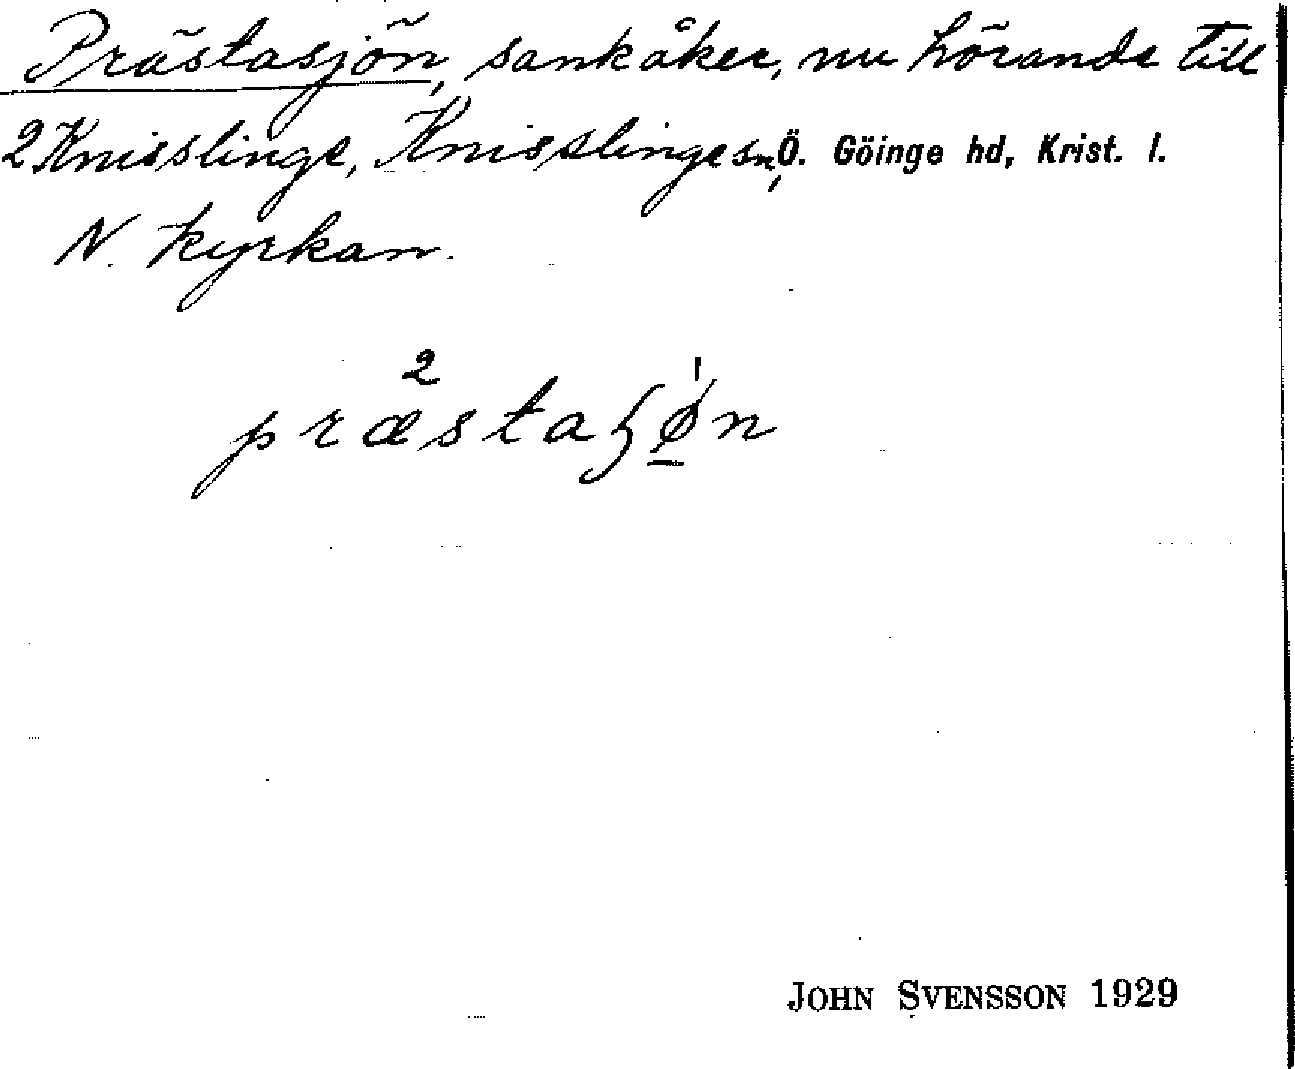 Prästasjön, sank åker, nu hörande till
2 Knisslinge, Knisslinge sn, Ö. Göinge hd, Krist. l.
N. kyrkan.
2
præstaɧǿ̱n
JOHN SVENSSON 1929